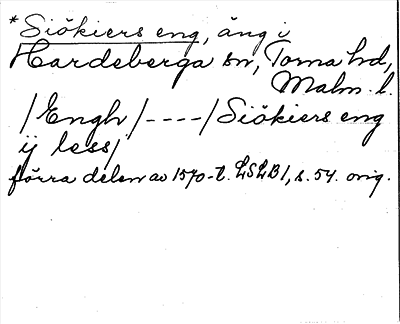 *Siökiers eng, äng i
Hardeberga sn, Torna hd,
Malm. l.
/Engh/----/Siökiers eng
ij less/
förra delen av 1570-t. LSLB1, s. 54. orig.